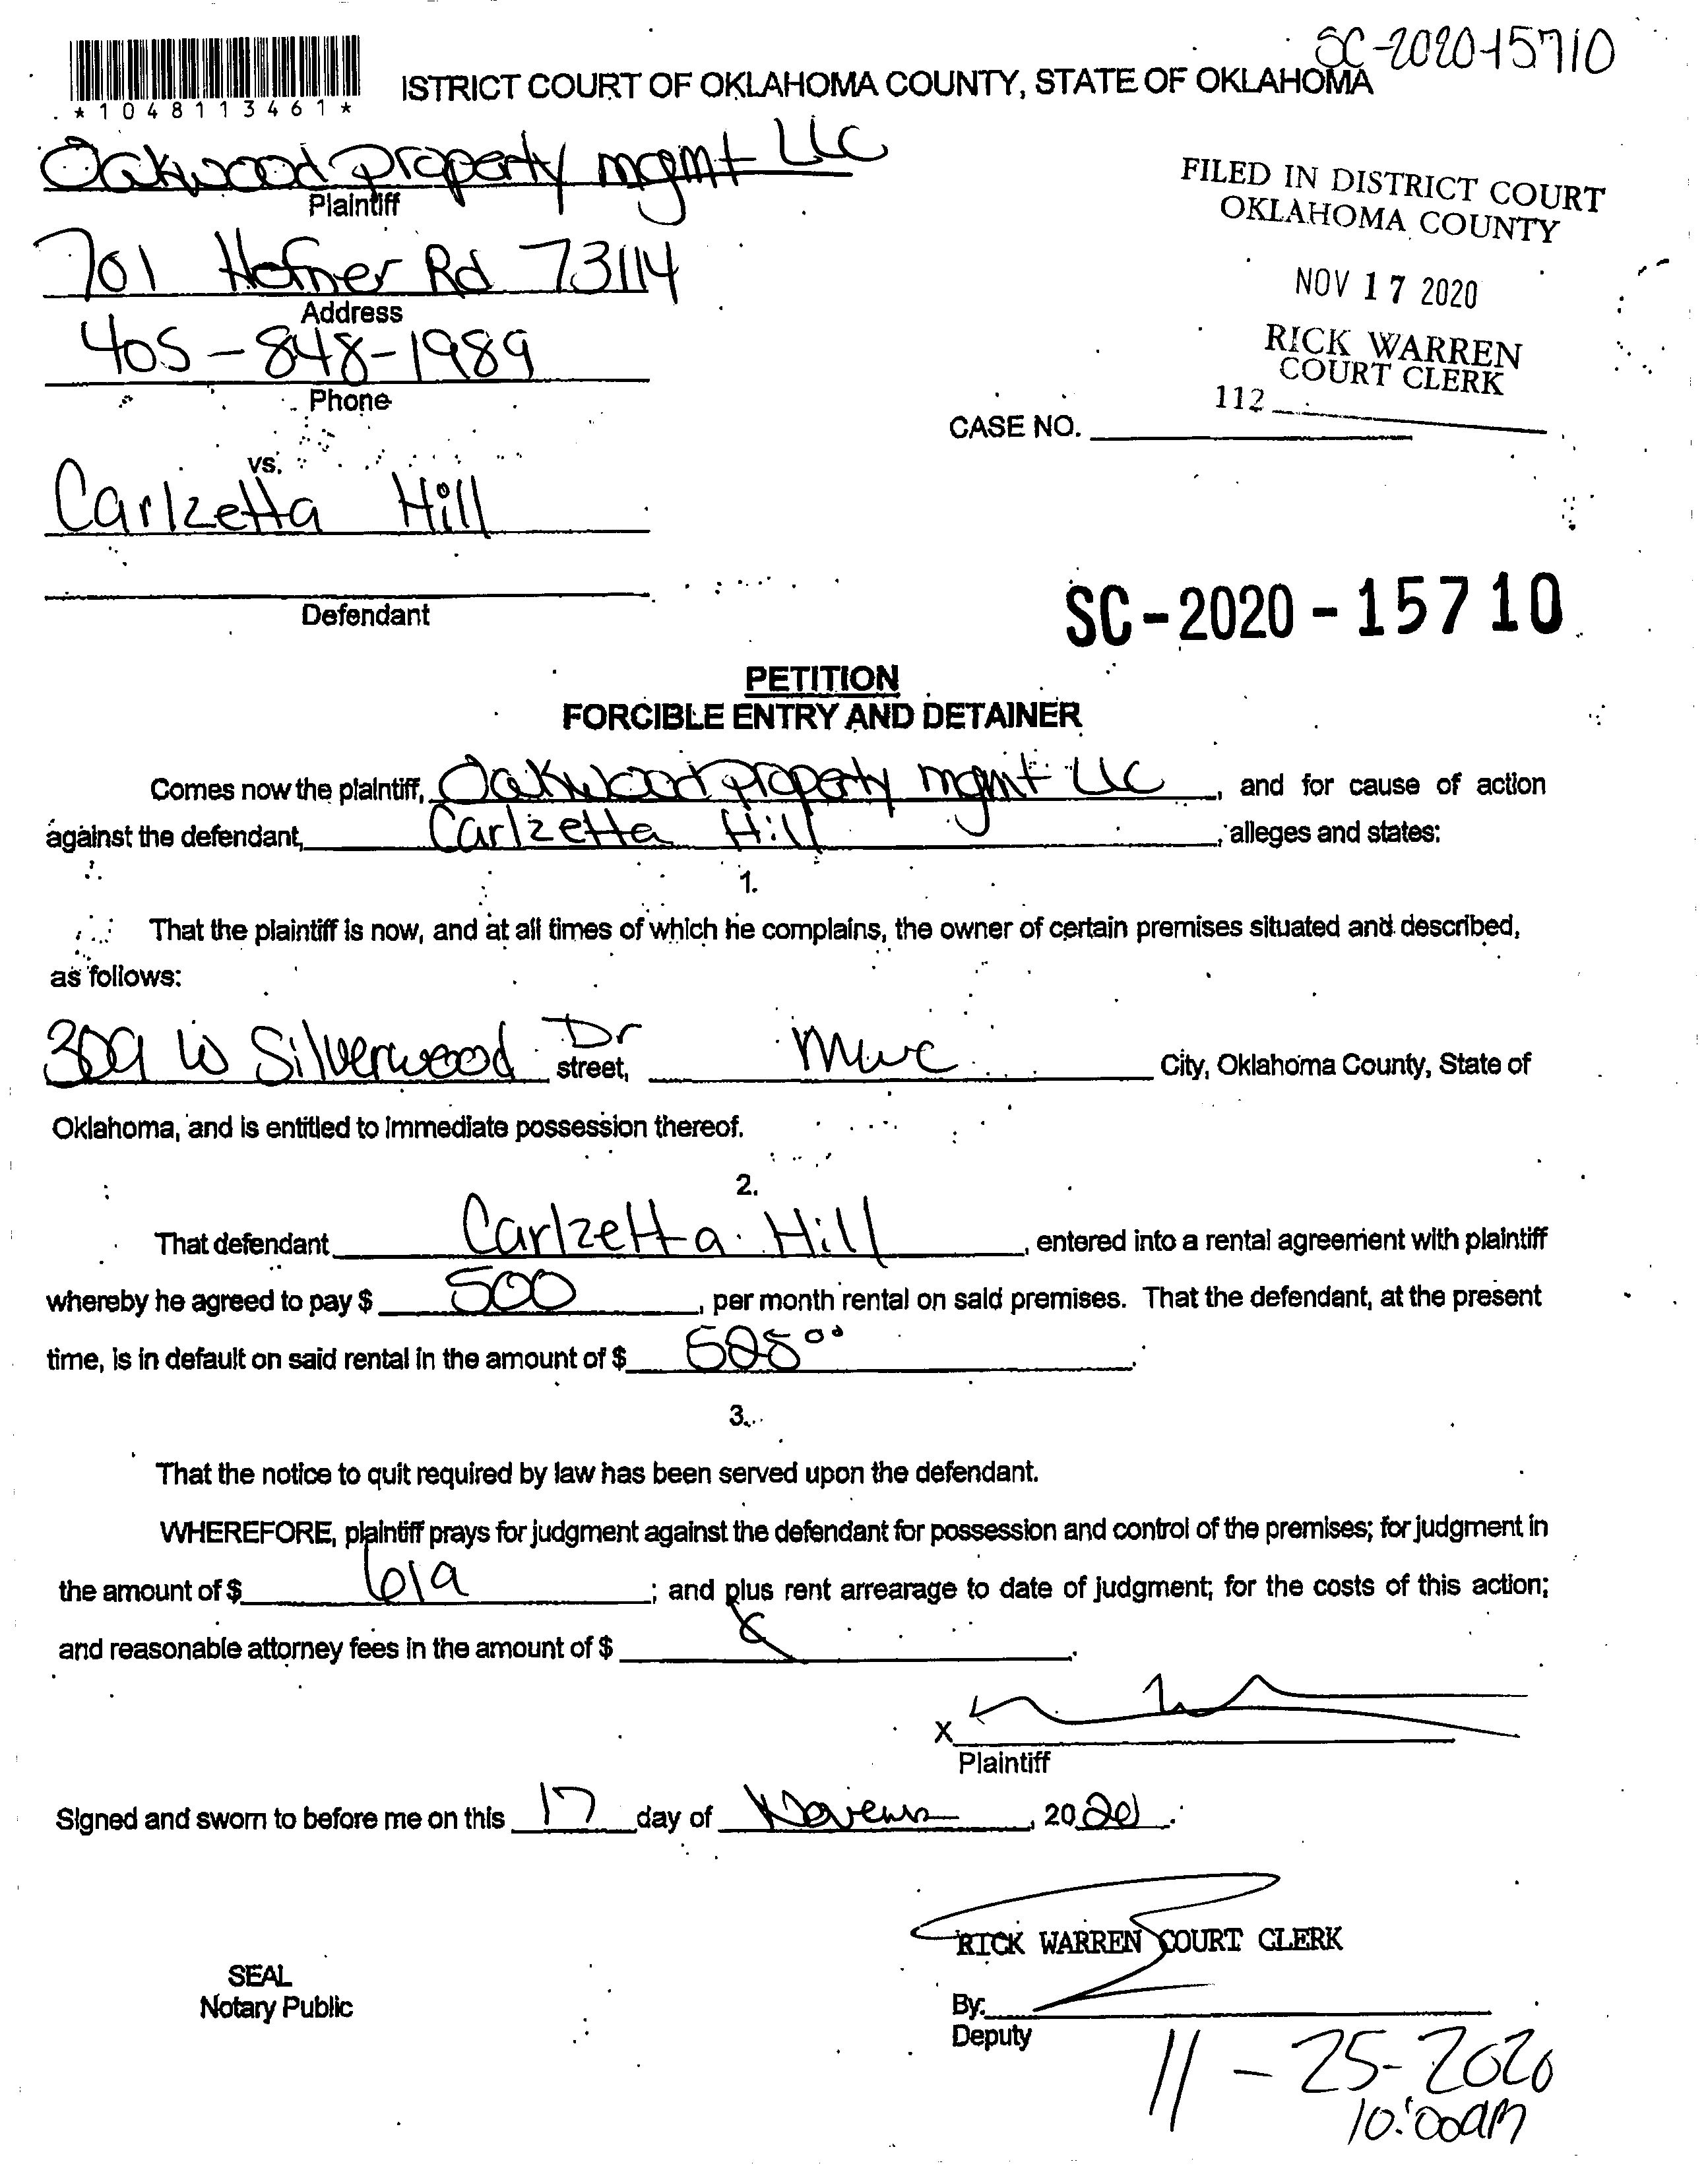 SC-2020-15710
ISTRICT COURT OF OKLAHOMA COUNTY, STATE OF OKLAHOMA
*1048113461*
Oakwood property mgmt LLC
Plaintiff
FILED IN DISTRICT COURT
OKLAHOMA COUNTY
701 Hefner Rd 73114
Address
NOV 17 2020
405-848-1989
Phone
RICK WARREN
COURT CLERK
112
CASE NO.
vs.
Carlzetta Hill
Defendant
SC-2020-15710
PETITION
FORCIBLE ENTRY AND DETAINER
Comes now the plaintiff, Oakwood property mgmt LLC, and for cause of action
against the defendant, Carlzetta Hill, alleges and states:
1.
That the plaintiff is now, and at all times of which he complains, the owner of certain premises situated and described,
as follows:
309 W Silverwood Dr street, mwc City, Oklahoma County, State of
Oklahoma, and is entitled to immediate possession thereof.
2.
That defendant Carlzetta Hill, entered into a rental agreement with plaintiff
whereby he agreed to pay $ 500, per month rental on said premises. That the defendant, at the present
time, is in default on said rental in the amount of $ 525 00.
3.
That the notice to quit required by law has been served upon the defendant.
WHEREFORE, plaintiff prays for judgment against the defendant for possession and control of the premises; for judgment in
the amount of $ 619; and plus rent arrearage to date of judgment; for the costs of this action;
and reasonable attorney fees in the amount of $.
X
Plaintiff
Signed and sworn to before me on this 17 day of, 2020.
RICK WARREN COURT CLERK
SEAL
Notary Public
By:
Deputy
11-25-2020
10:00am